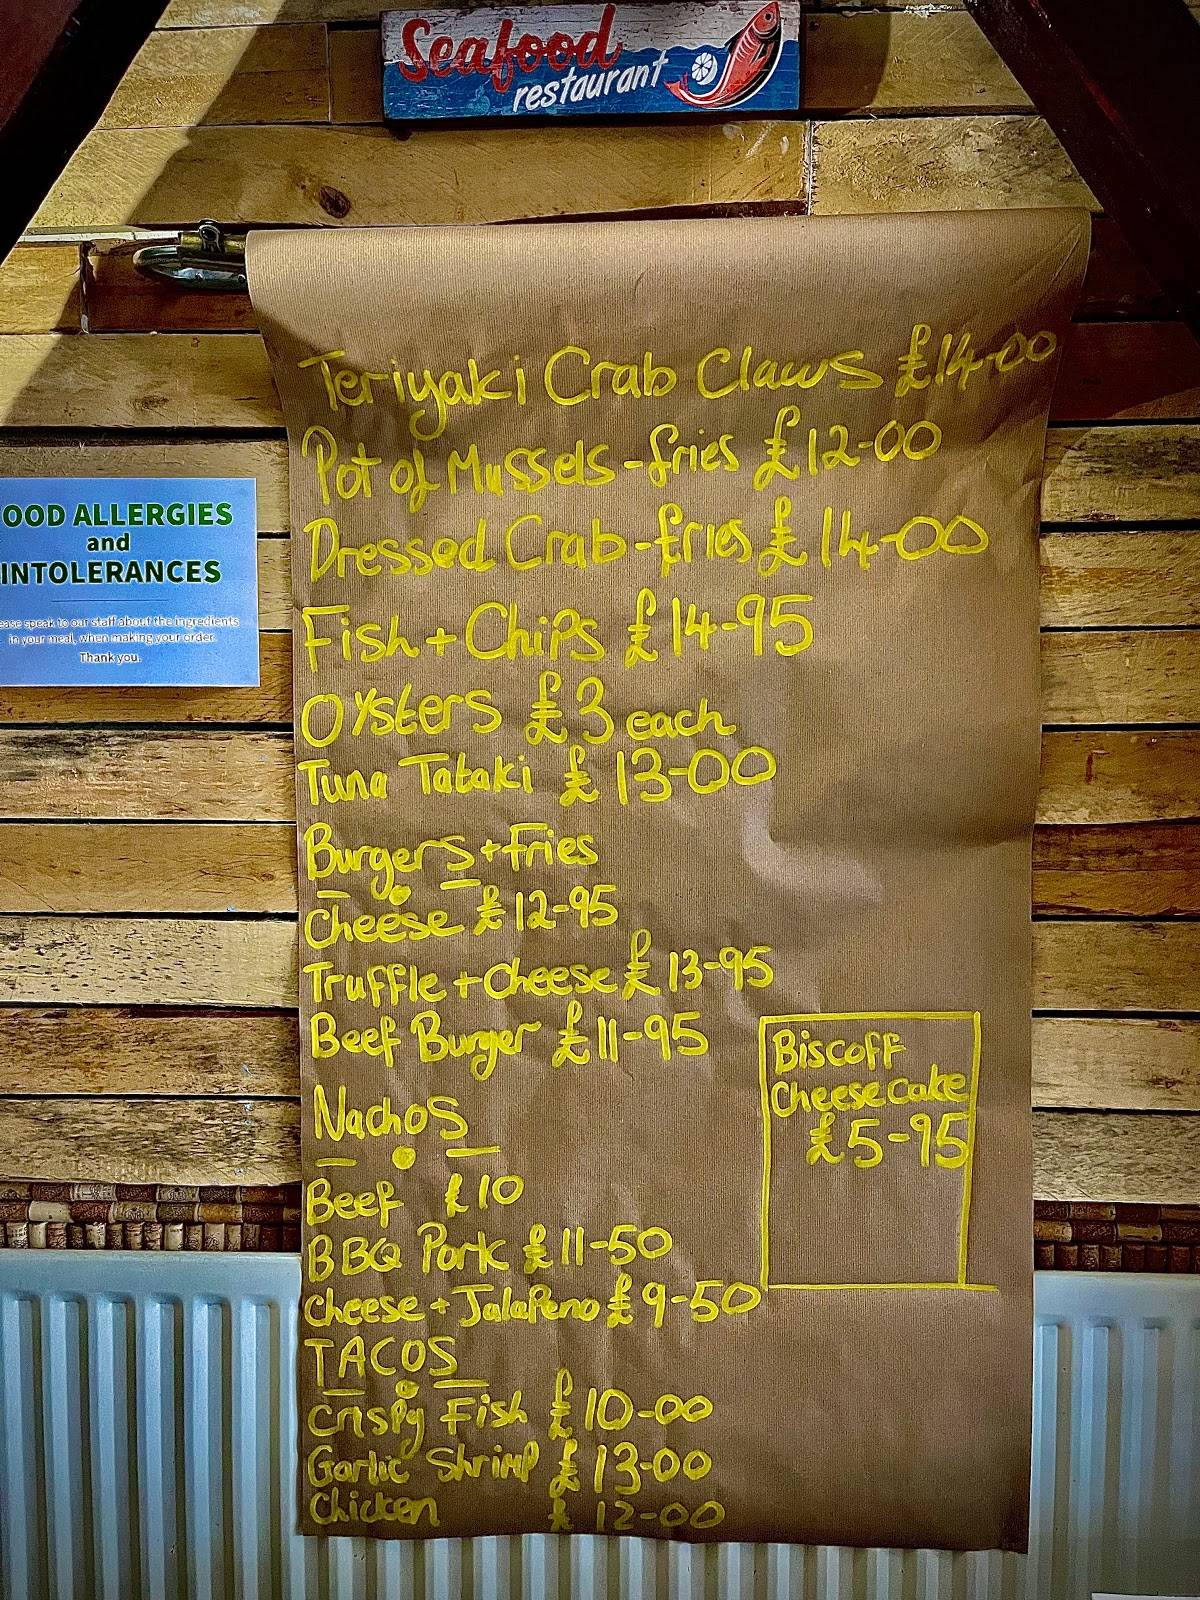 Seafood
restaurant
Teriyaki Crab Claws £14-00
Pot of Mussels - fries £12-00
Dressed Crab - fries £14-00
Fish + Chips £14-95
Oysters £3 each
Tuna Tataki £13-00
Burgers + Fries
Cheese £12-95
Truffle + Cheese £13-95
Beef Burger £11-95
Nachos
Beef £10
BBQ Pork £11-50
Cheese + Jalapeno £9-50
TACOS
Crispy Fish £10-00
Garlic Shrimp £13-00
Chicken £12-00
Biscoff
Cheesecake
£5-95
OOD ALLERGIES
and
INTOLERANCES
ease speak to our staff about the ingredients
in your meal, when making your order.
Thank you.